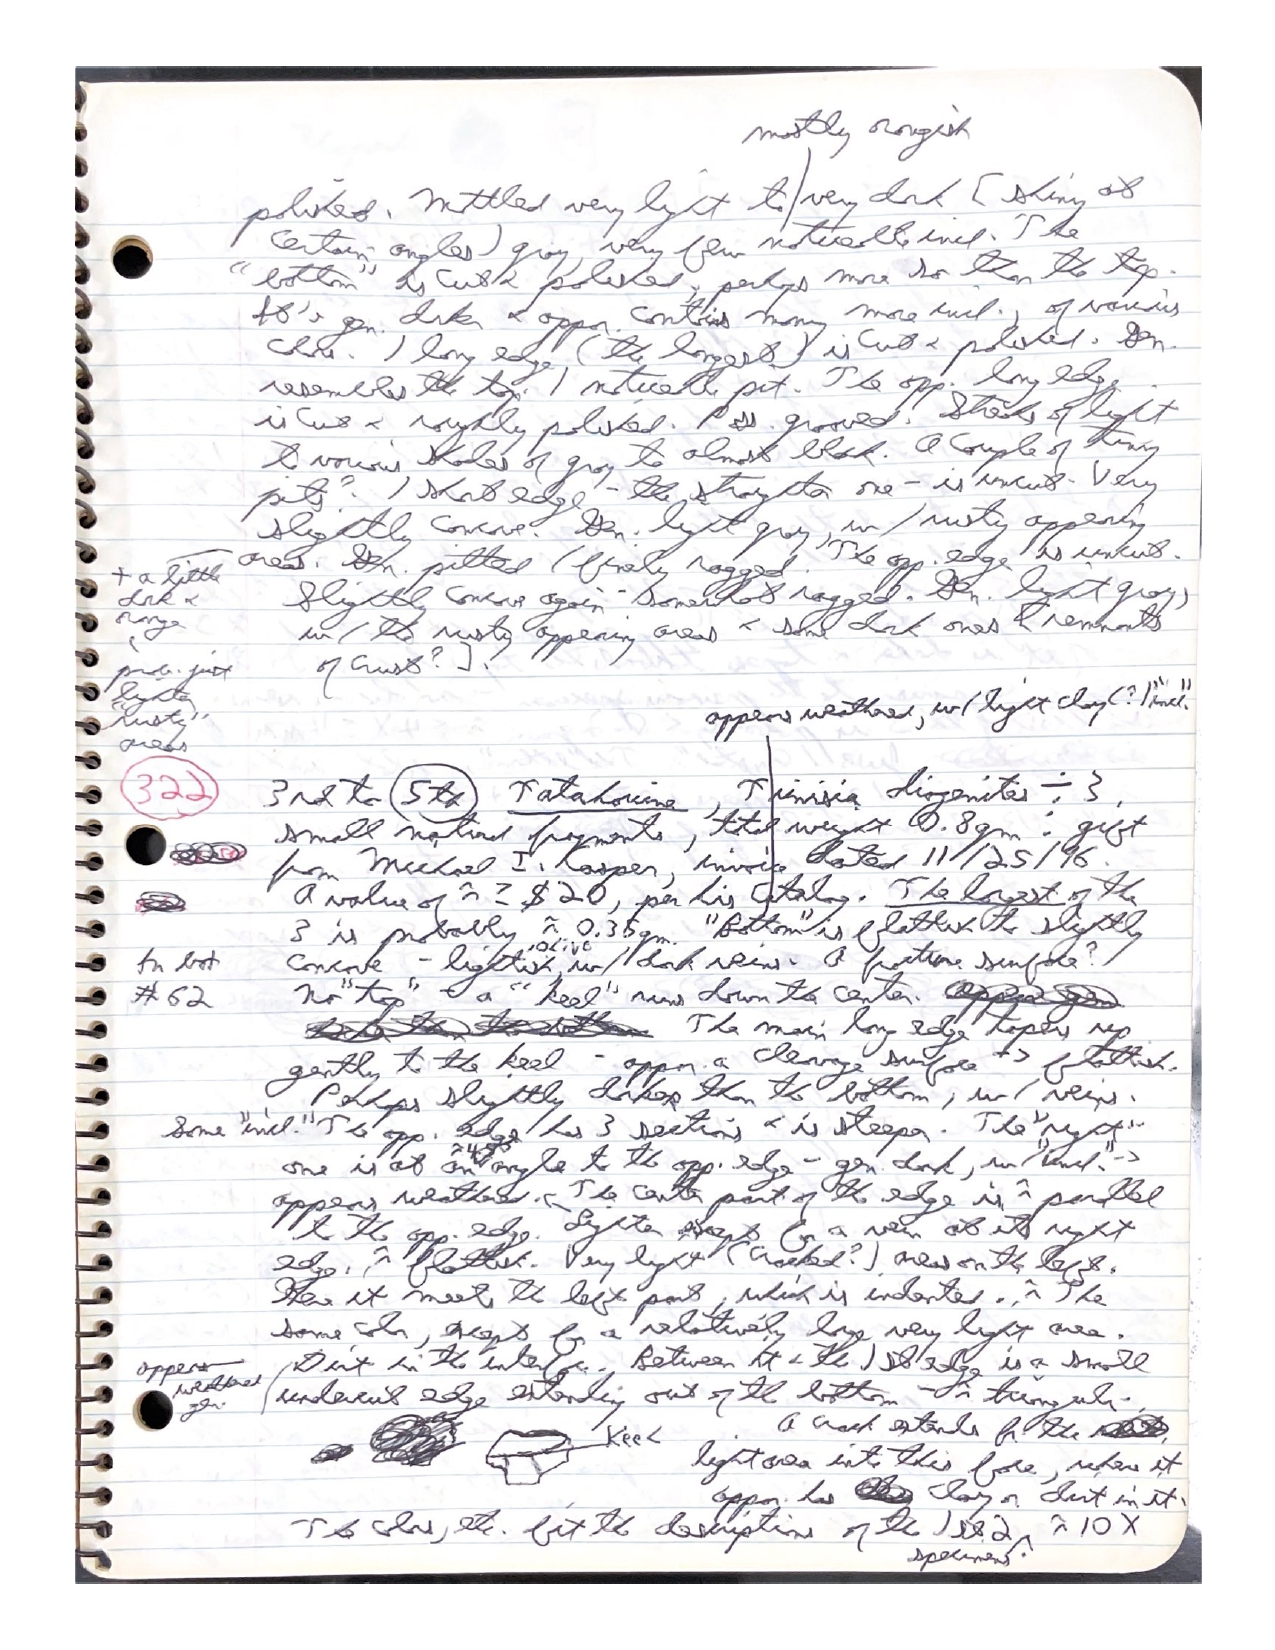 mostly orangish
polished. Mottled very light to very dark [shiny at
certain angles) gray, very few noticeable incl. The
"bottom" is cut & polished, perhaps more so than the top.
It's gen. darker & appar. contains many more incl., of various
colors. 1 long edge (the longest) is cut & polished. Gen.
resembles the top. 1 noticeable pit. The opp. long edge
is cut & roughly polished. Poss. grooved. Streaks of light
to various shades of gray to almost black. A couple of tiny
pits? 1 short edge - the straighter one - is uncut. Very
slightly concave. Gen. light gray, w/ rusty appearing
areas. Gen. pitted / finely ragged. The opp. edge is uncut.
+ a little
dark &
orange
&
prob. just
lighter
"rusty"
areas
Slightly concave again - somewhat ragged. Gen. light gray,
w/ the rusty appearing areas & some dark ones & remnants
of crust? ].
appears weathered, w/ light clay(?) "incl."
322
3rd to 5th Tatahouine, Tunisia diogenites ÷ 3
small natural fragments, total weight 0.8gm : gift
from Michael I. Casper, invoice dated 11/25/96.
A value of ≈ ≥ $20, per his catalog. The largest of the
3 is probably ≈ 0.35gm. "Bottom" is flattish to slightly
olive
in box
#62
concave - lightish, w/ dark veins. A fracture surface?
No "top" - a "keel" runs down the center.
The main long edge tapers up
gently to the keel - appar. a cleavage surface -> flattish.
Perhaps slightly darker than the bottom, w/ veins.
Some "incl." The opp. edge has 3 sections & is steeper. The "right"
≈45°
one is at an angle to the opp. edge - gen. dark, w/ "incl." ->
appears weathered. The center part of the edge is ≈ parallel
to the opp. edge. Lighter except for a vein at its right
edge. ≈ flattish. Very light (cracked?) area on the left.
Here it meets the left part, which is indented. ≈ The
same color, except for a relatively large very light area.
appears
weathered
gen.
Dirt in the interface. Between it & the 1st edge is a small
undercut edge extending out of the bottom - ≈ triangular.
Keel
A crack extends fr. the
light area into this face, where it
appar. has clay or dirt in it.
The colors, etc. fit the descriptions of the 1st 2 ≈ 10X
specimens.